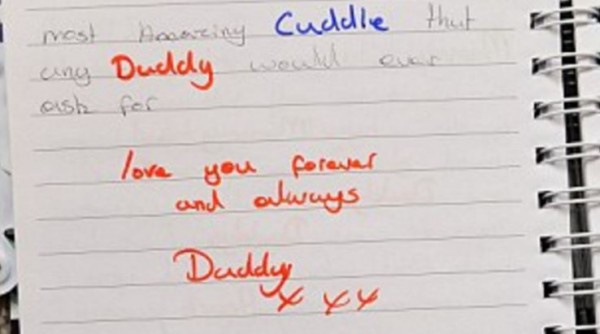 most Amazing Cuddle that
any Daddy would ever
ask for
love you forever
and always
Daddy
x x x